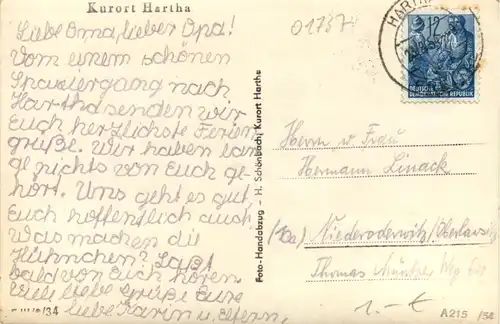 Kurort Hartha
Liebe Oma, lieber Opa!
Vom einem schönen
Spaziergang nach
Hartha senden wir
Euch herzlichste Ferien
grüße. Wir haben lan
ge nichts von Euch ge-
hört. Uns geht es gut,
Euch hoffentlich auch
Was machen die
Hühnchen? Laßt
bald von Euch hören
Viele liebe Grüße Eure
liebe Karin u. Eltern.
/34
Foto-Handabzug - H. Schönbach, Kurort Hartha
01737
HARTHA
12
DEUTSCHE
DEMOKRATISCHE REPUBLIK
Herrn u. Frau
Hermann Linack
(10a) Niederoderwitz/Oberlausitz
Thomas Müntzer Weg
1.- €
A 215 /56